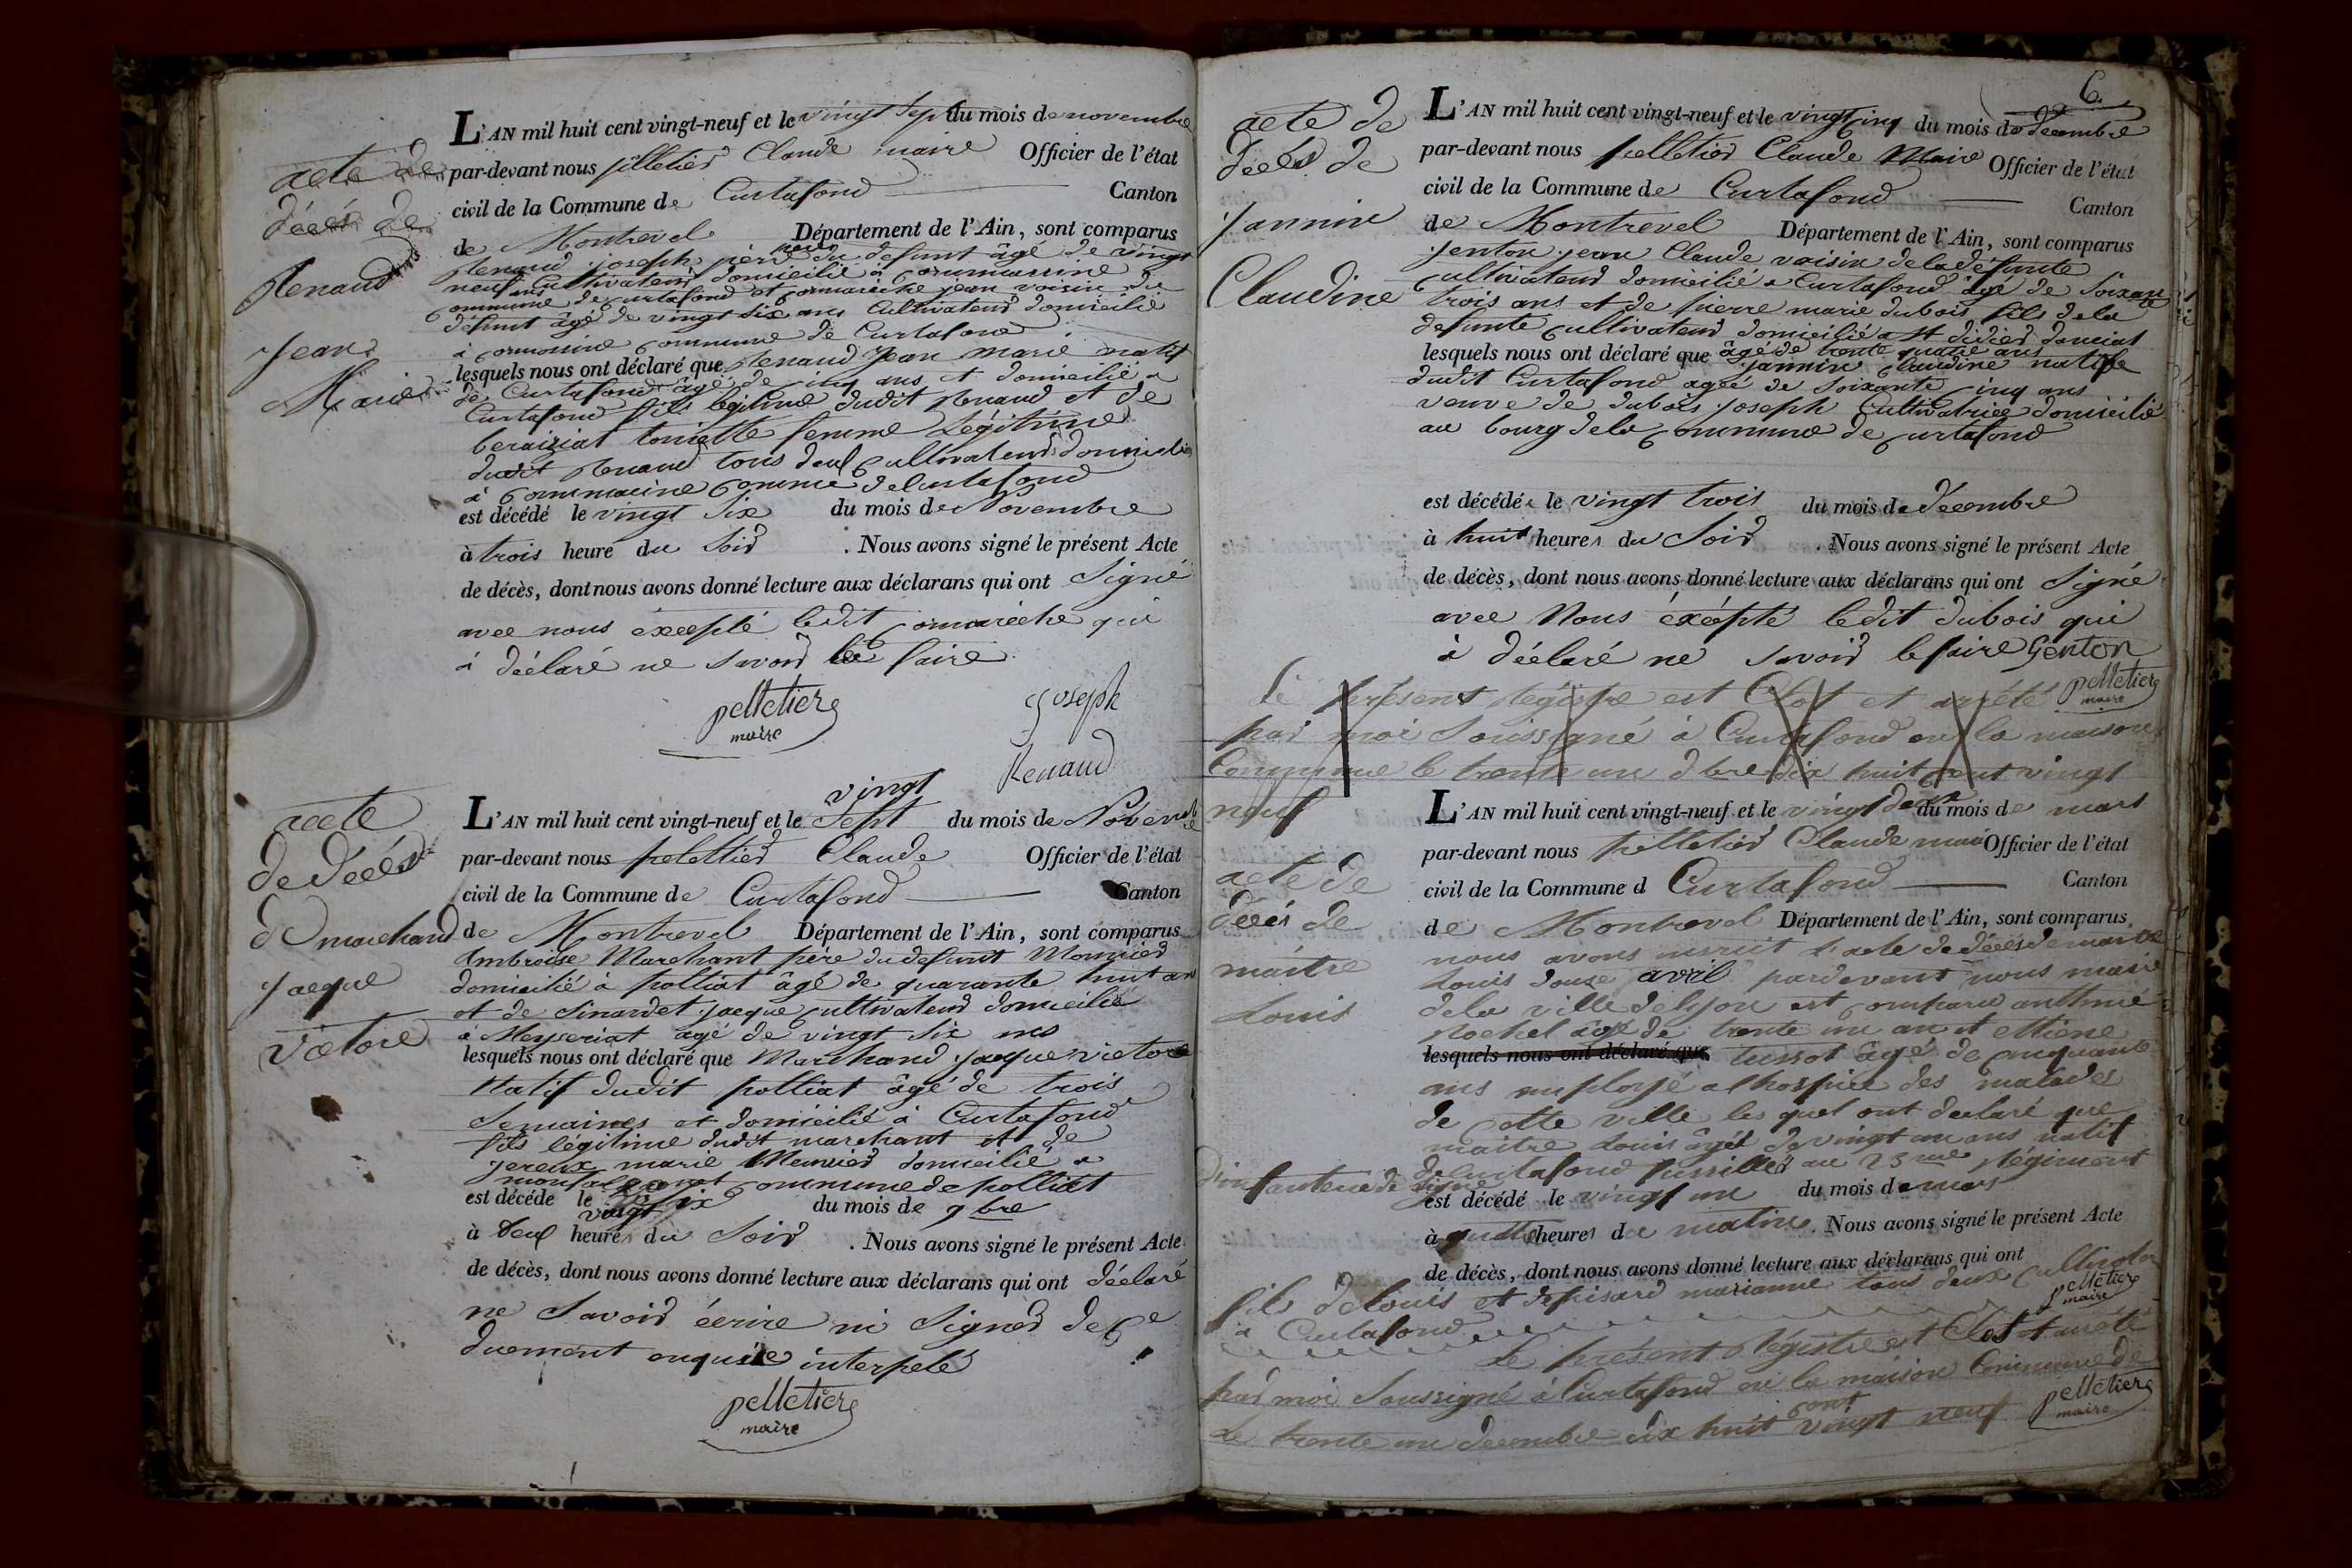 acte de
décés de
Renaud
Jean
Marie
L'AN mil huit cent vingt-neuf et le vingt sept du mois de novembre
par-devant nous pelletier Claude maire Officier de l'état
civil de la Commune de Curtafond Canton
de Montrevel Département de l'Ain, sont comparus
Renaud joseph père du defunt âgé de vingt
neuf ans cultivateur domicilié à
commune de curtafond et jean voisin du
défunt âgé de vingt six ans Cultivateur domicilié
à commune de Curtafond
lesquels nous ont déclaré que Renaud Jean Marie natif
de Curtafond âgé de cinq ans et domicilié a
Curtafond fils légitime dudit Renaud et de
femme Légitime
dudit Renaud tous deux cultivateurs domiciliés
à commune de Curtafond
est décédé le vingt six du mois de Novembre
à trois heure du Soir . Nous avons signé le présent Acte
de décès, dont nous avons donné lecture aux déclarans qui ont Signé
avec nous éxcepté ledit qui
à déclaré ne savoir le faire
pelletier Joseph
maire Renaud
acte
de décés
de marchand
jacque
victore
L'AN mil huit cent vingt-neuf et le vingt Sept du mois de Novembre
par-devant nous peletier Claude Officier de l'état
civil de la Commune de Curtafond Canton
de Montrevel Département de l'Ain, sont comparus
Ambroise Marchant père du defunt Meunier
domicilié à polliat âgé de quarante huit an
et de Sinardet jacque cultivateur domicilié
à Mezeriat agé de vingt Six ans
lesquels nous ont déclaré que Marchand jacque victore
Natif dudit polliat âgé de trois
Semaines et domicilié à Curtafond
fils légitime dudit marchant et de
marie Meunier domicilié a
commune de polliat
est décédé le vingt six du mois de 9bre
à deux heures du Soir . Nous avons signé le présent Acte
de décès, dont nous avons donné lecture aux déclarans qui ont déclaré
ne Savoir écrire ni Signer de Ce
duement enquis interpelé
pelletier
maire
6
acte de
décés de
jannin
Claudine
L'AN mil huit cent vingt-neuf et le vingt cinq du mois de décembre
par-devant nous pelletier Claude Maire Officier de l'état
civil de la Commune de Curtafond Canton
de Montrevel Département de l'Ain, sont comparus
jenton jean Claude voisin de la défunte
cultivateur domicilié a Curtafond âgé de Soixante
trois ans et de pierre marie dubois fils de la
defunte cultivateur domicilié a St didier
âgé de trente quatre ans
lesquels nous ont déclaré que jannin Claudine native
dudit Curtafond agée de Soixante cinq ans
veuve de dubois joseph Cultivatrice domicilié
au bourg de la commune de curtafond
est décédée le vingt trois du mois de décembre
à huit heures du Soir . Nous avons signé le présent Acte
de décès, dont nous avons donné lecture aux déclarans qui ont Signé
avec Nous éxcépté ledit dubois qui
à déclaré ne Savoir le faire Genton
pelletier
maire
Le présent Régistre est Clos et arrêté
par moi Soussigné à Curtafond en la maison
Commune le trente un dbre dix huit cent vingt
neuf
acte de
décés de
maitre
Louis
L'AN mil huit cent vingt-neuf et le vingt deux du mois de mars
par-devant nous pelletier Claude maire Officier de l'état
civil de la Commune d Curtafond Canton
de Montrevel Département de l'Ain, sont comparus
nous avons inscrit l'acte de décés de maitre
Louis douze avril pardevant nous maire
de la ville de lyon est comparu
âgé de trente un an et
lesquels nous ont déclaré que tussot âgé de cinquante
ans employé a lhospice des malades
de cette ville les quel ont declaré que
maitre Louis âgé de vingt un ans natif
de Curtafond fusillier au 23me Régiment
d'infanterie de ligne
est décédé le vingt un du mois de mars
à quatre heures du matin . Nous avons signé le présent Acte
de décès, dont nous avons donné lecture aux déclarans qui ont
fils de Louis et de marianne tous deux
à Curtafond
pelletier
maire
Le présent Régistre est Clos et arrété
par moi Soussigné à Curtafond en la maison Commune de
Le trente un decembre dix huit cent vingt neuf
pelletier
maire